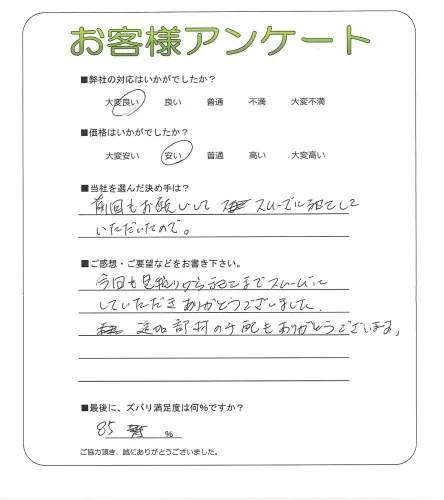 お客様アンケート
■弊社の対応はいかがでしたか？
大変良い 良い 普通 不満 大変不満
■価格はいかがでしたか？
大変安い 安い 普通 高い 大変高い
■当社を選んだ決め手は？
前回もお願いして スムーズに施工して
いただいたので。
■ご感想・ご要望などをお書き下さい。
今回も見積りから施工までスムーズに
していただきありがとうございました。
追加部材の手配もありがとうございます。
■最後に、ズバリ満足度は何％ですか？
85 ％
ご協力頂き、誠にありがとうございました。